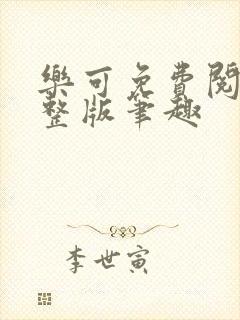 樂可免費閱
整版筆趣
李世寅